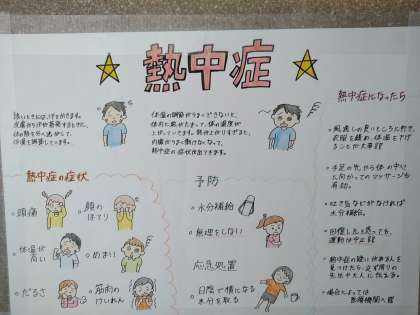 熱中症
暑いときには、汗をかきます。
皮膚から汗が蒸発するときに、
体の熱を
体温を調節しています。
体温の調節がうまくできないと、
体内に熱がたまって、体の温度が
上がっていきます。熱が上がりすぎると、
内臓がうまく働けなくなって、
熱中症の症状が出てきます。
熱中症の症状
・頭痛
・顔のほてり
・体温が高い
・めまい
・だるさ
・筋肉のけいれん
予防
・水分補給
・無理をしない
応急処置
・日陰で横になる
水分を取る
熱中症になったら
・風通しの良いところに行き、
衣服を緩め、体温を下げ
ることが大事
・手足の先から体の中心
に向かってのマッサージも
有効。
・吐き気などがなければ
水分補給。
・回復したと思っても、
運動は中止
・熱中症の疑いがある人を
見つけたら、必ず周りの
先生や大人に伝える。
・場合によっては
医療機関へ